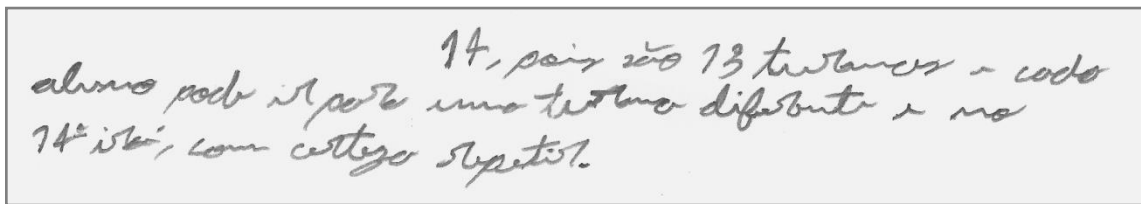 14, pois são 13 turmas e cada
aluno pode ir para uma turma diferente e no
14º irá, com certeza repetir.